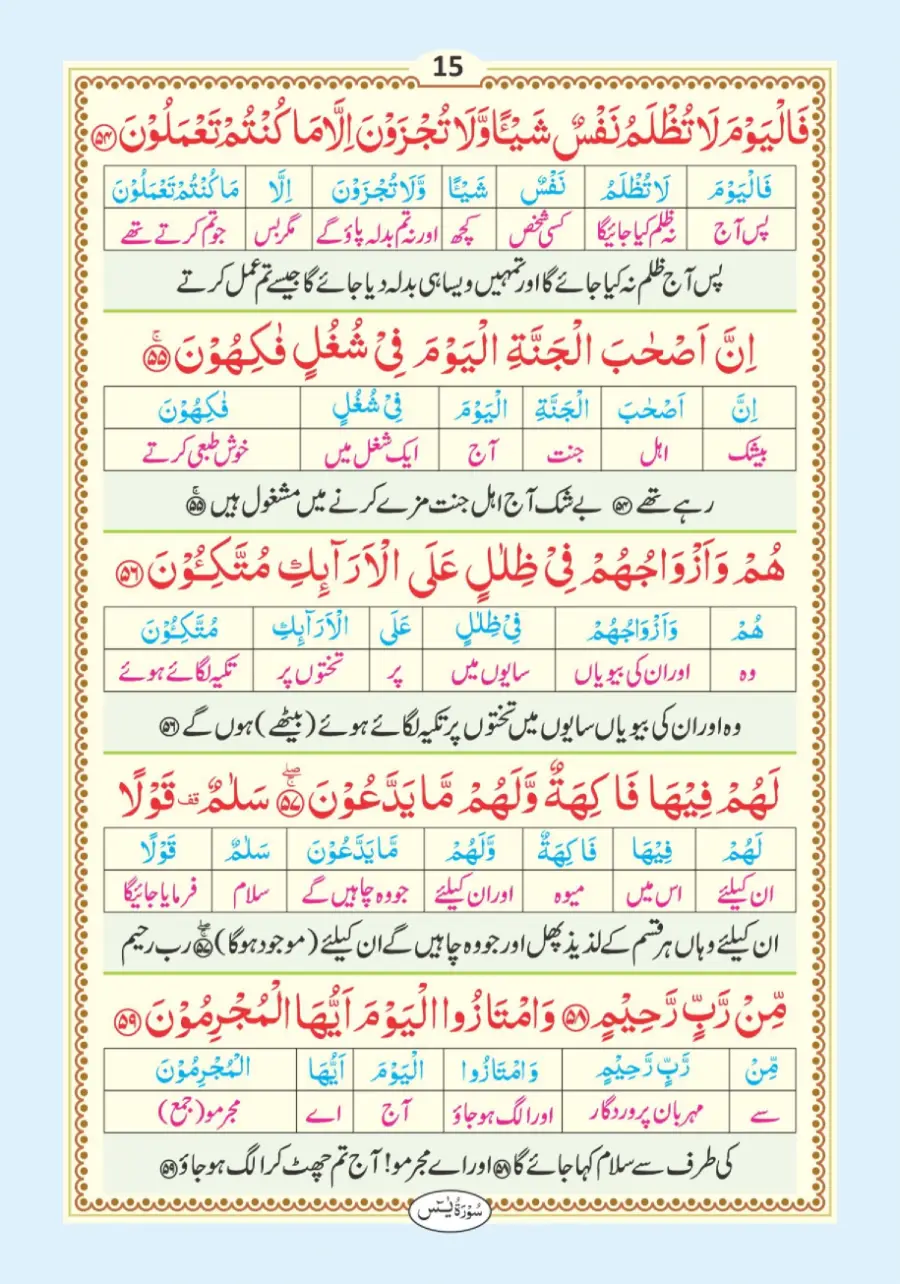 15
فَالْيَوْمَ لَا تُظْلَمُ نَفْسٌ شَيْـًٔا وَّلَا تُجْزَوْنَ اِلَّا مَا كُنْتُمْ تَعْمَلُوْنَ ۝۵۴
فَالْيَوْمَ لَا تُظْلَمُ نَفْسٌ شَيْـًٔا وَّلَا تُجْزَوْنَ اِلَّا مَا كُنْتُمْ تَعْمَلُوْنَ
پس آج نہ ظلم کیا جائیگا کسی شخص کچھ اور نہ تم بدلہ پاؤ گے مگر بس جو تم کرتے تھے
پس آج ظلم نہ کیا جائے گا اور تمہیں ویسا ہی بدلہ دیا جائے گا جیسے تم عمل کرتے
اِنَّ اَصْحٰبَ الْجَنَّةِ الْيَوْمَ فِيْ شُغُلٍ فٰكِهُوْنَ ۝۵۵ ۚ
اِنَّ اَصْحٰبَ الْجَنَّةِ الْيَوْمَ فِيْ شُغُلٍ فٰكِهُوْنَ
بیشک اہل جنت آج ایک شغل میں خوش طبعی کرتے
رہے تھے ۝۵۴ بے شک آج اہل جنت مزے کرنے میں مشغول ہیں ۝۵۵ ۚ
هُمْ وَاَزْوَاجُهُمْ فِيْ ظِلٰلٍ عَلَى الْاَرَآىِٕكِ مُتَّكِـُٔوْنَ ۝۵۶
هُمْ وَاَزْوَاجُهُمْ فِيْ ظِلٰلٍ عَلَى الْاَرَآىِٕكِ مُتَّكِـُٔوْنَ
وہ اور ان کی بیویاں سایوں میں پر تختوں پر تکیہ لگائے ہوئے
وہ اور ان کی بیویاں سایوں میں تختوں پر تکیہ لگائے ہوئے (بیٹھے) ہوں گے ۝۵۶
لَهُمْ فِيْهَا فَاكِهَةٌ وَّلَهُمْ مَّا يَدَّعُوْنَ ۝۵۷ ۖۚ سَلٰمٌ قف قَوْلًا
لَهُمْ فِيْهَا فَاكِهَةٌ وَّلَهُمْ مَّا يَدَّعُوْنَ سَلٰمٌ قَوْلًا
ان کیلئے اس میں میوہ اور ان کیلئے جو وہ چاہیں گے سلام فرمایا جائیگا
ان کیلئے وہاں ہر قسم کے لذیذ پھل اور جو وہ چاہیں گے ان کیلئے (موجود ہوگا) ۝۵۷ ۖۚ رب رحیم
مِّنْ رَّبٍّ رَّحِيْمٍ ۝۵۸ وَامْتَازُوا الْيَوْمَ اَيُّهَا الْمُجْرِمُوْنَ ۝۵۹
مِّنْ رَّبٍّ رَّحِيْمٍ وَامْتَازُوا الْيَوْمَ اَيُّهَا الْمُجْرِمُوْنَ
سے مہربان پروردگار اور الگ ہو جاؤ آج اے مجرمو (جمع)
کی طرف سے سلام کہا جائے گا ۝۵۸ اور اے مجرمو! آج تم چھٹ کر الگ ہو جاؤ ۝۵۹
سُوْرَةُ يٰسٓ